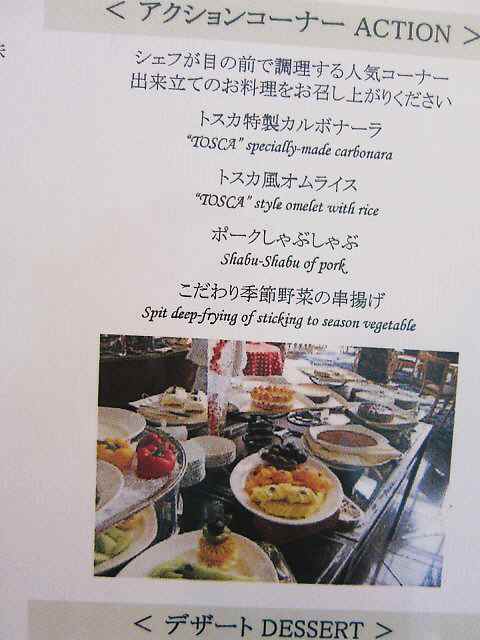 < アクションコーナー ACTION >
シェフが目の前で調理する人気コーナー
出来立てのお料理をお召し上がりください
トスカ特製カルボナーラ
“TOSCA” specially-made carbonara
トスカ風オムライス
“TOSCA” style omelet with rice
ポークしゃぶしゃぶ
Shabu-Shabu of pork
こだわり季節野菜の串揚げ
Spit deep-frying of sticking to season vegetable
< デザート DESSERT >